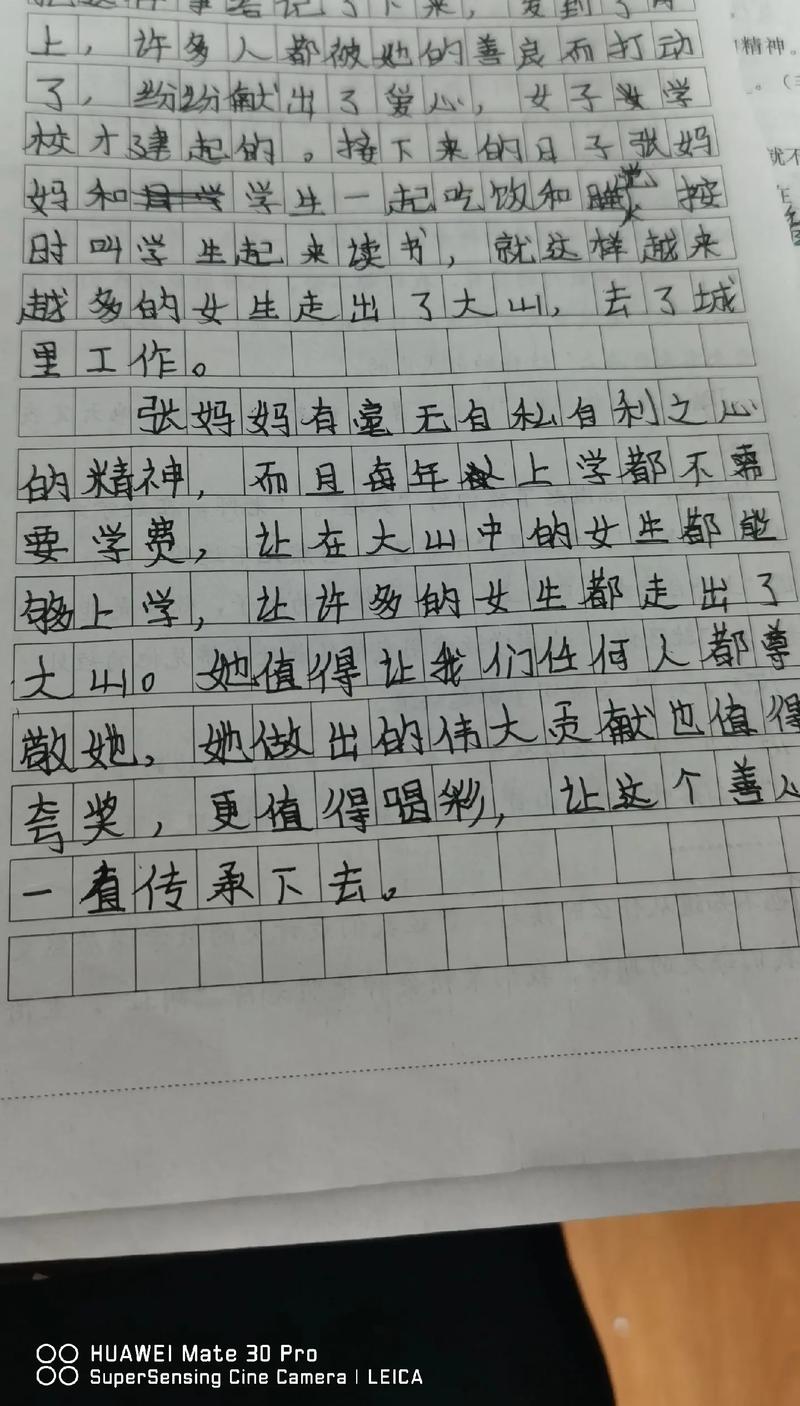 下来，发到了网
上，许多人都被她的善良而打动
了，纷纷献出了爱心，女子学
校才建起的。接下来的日子张妈
妈和学生一起吃饭和睡觉按
时叫学生起来读书，就这样越来
越多的女生走出了大山，去了城
里工作。
张妈妈有毫无自私自利之心
的精神，而且每年上学都不需
要学费，让在大山中的女生都能
够上学，让许多的女生都走出了
大山。她值得让我们任何人都尊
敬她，她做出的伟大贡献也值得
夸奖，更值得喝彩，让这个善心
一直传承下去。
精神。
HUAWEI Mate 30 Pro
SuperSensing Cine Camera | LEICA